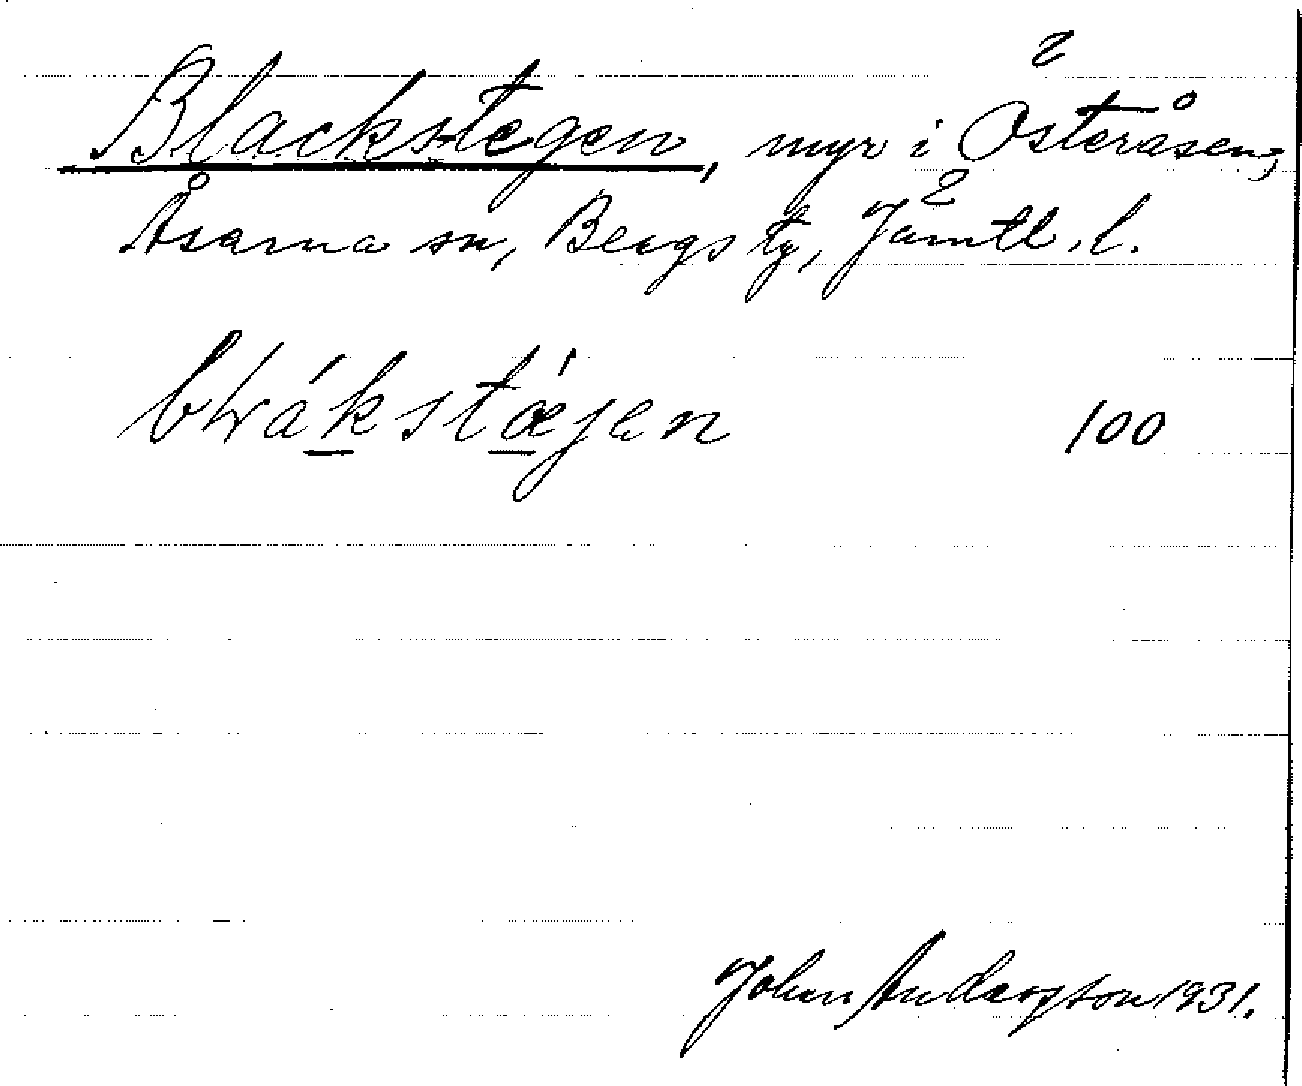 Blackstegen, myr i Österåsen,
Åsarna sn, Bergs tg, Jämtl. l.
100
John Andersson 1931.